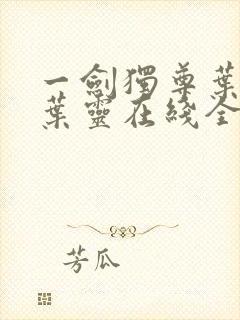 一劍獨尊葉
葉靈在綫全
芳瓜